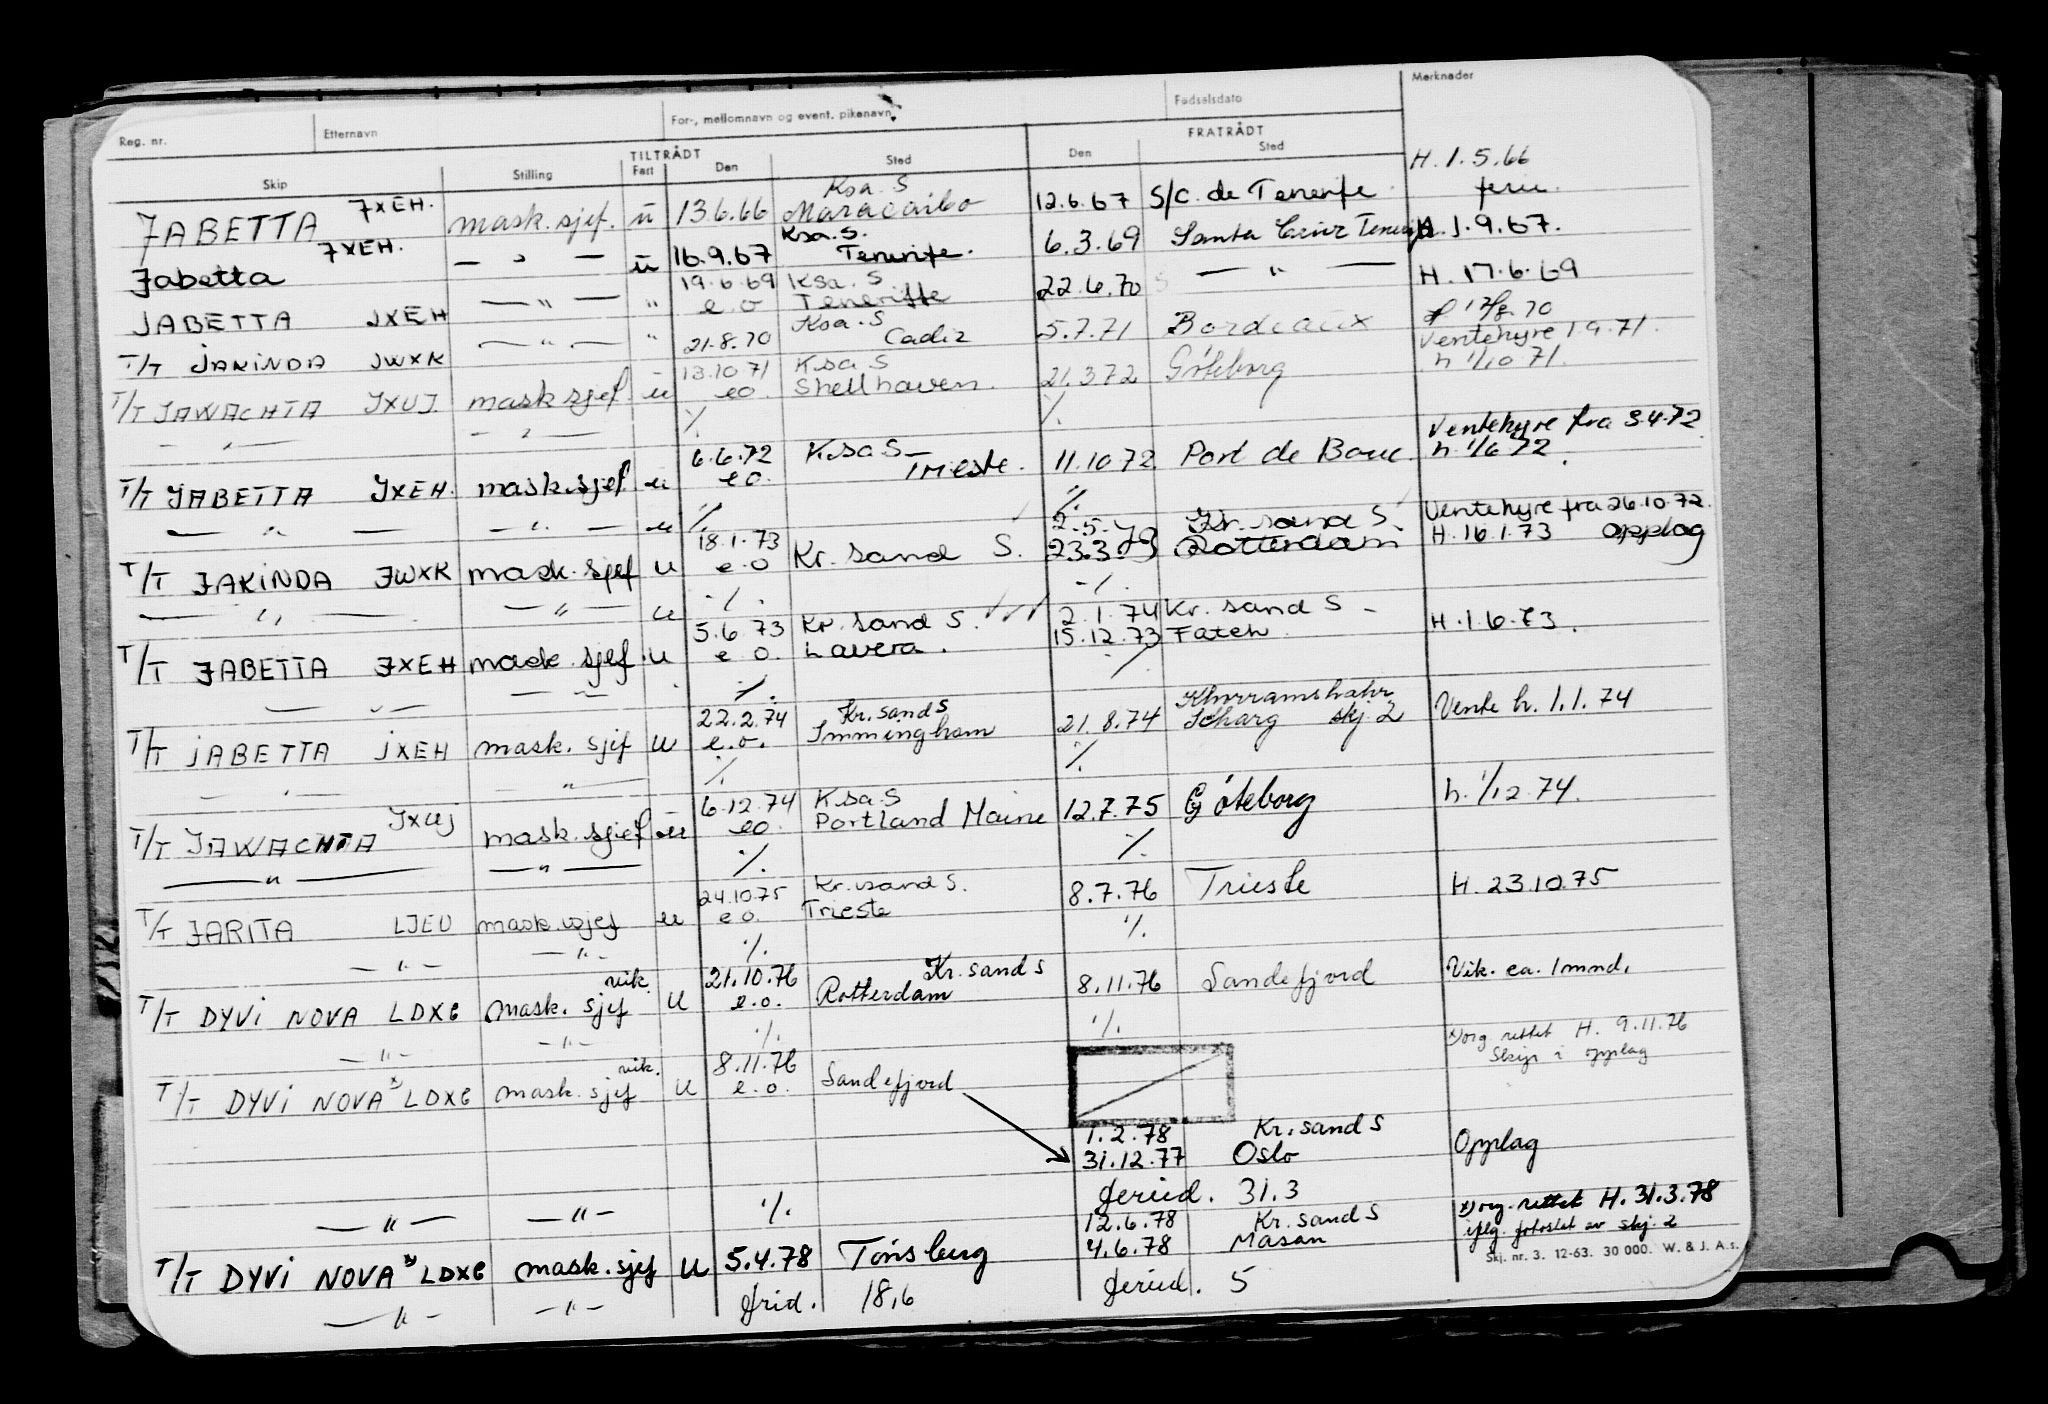 Reg. nr. Etternavn For-, mellomnavn og event. pikenavn Fødselsdato Merknader
TILTRÅDT FRATRÅDT
Skip Stilling Fart Den Sted Den Sted
H. 1.5.66
JABETTA JXEH. mask.sjef. u 13.6.66 Ksa. S Maracaibo 12.6.67 S/C. de Tenerife ferie.
Jabetta JXEH. — " — u 16.9.67 Ksa. S. Tenerife. 6.3.69 Santa Cruz Tenerife H. 1.9.67.
JABETTA JXEH — " — " 19.6.69 e.o Ksa. S Teneriffe 22.6.70 — " — H. 17.6.69
T/T JAKINDA JWXK — " — " 21.8.70 Ksa. S Cadiz 5.7.71 Bordeaux 17/8.70
Ventehyre 1.9.71.
T/T JAWACHTA JXUJ mask sjef. u 13.10.71 eo. Ksa S Shellhaven. 21.3.72 Göteborg h 1/10 71.
— " — — " — ./. ./.
Ventehyre fra 3.4.72
T/T JABETTA JXEH. mask.sjef u 6.6.72 eo. Ksa S — Trieste. 11.10.72 Port de Bouc. h. 1/6 72.
— " — — " — u ./. ./. Ventehyre fra 26.10.72.
2.5.73 Kr. sand S.
T/T JAKINDA JWXK mask. sjef u 18.1.73 e.o Kr. sand S. 23.3.73 Rotterdam H. 16.1.73 Opplag
— " — — " — u ./. ./.
2.1.74 Kr. sand S —
T/T JABETTA JXEH mask. sjef. u 5.6.73 e.o. Kr. sand S. Lavera. 15.12.73 Fateh. H. 1.6.73.
— " — — " — ./. ./.
T/T JABETTA JXEH mask. sjef u 22.2.74 e.o. Kr. sand S Immingham 21.8.74 Khurramshahr skj. 2 Vente h. 1.1.74
— " — — " — ./. ./.
T/T JAWACHTA JXUJ mask. sjef u 6.12.74 eo. Ksa S Portland Maine 12.7.75 Göteborg h. 1/12.74.
— " — — " — ./. ./.
T/T JARITA LJEU mask. sjef u 24.10.75 e.o. Kr. sand S. Trieste 8.7.76 Trieste H. 23.10.75
— " — — " — ./. ./.
T/T DYVI NOVA LDXG mask. sjef vik. u 21.10.76 e.o. Kr. sand S Rotterdam 8.11.76 Sandefjord Vik. ca. 1 mnd.
— " — — " — ./. ./.
x) org rettet H. 9.11.76
Skip i opplag
T/T DYVI NOVA x) LDXG mask. sjef vik. u 8.11.76 e.o. Sandefjord
1.2.78 Kr. sand S
31.12.77 Oslo Opplag
— " — — " — ./. feried. 31.3
12.6.78 Kr. sand S x) org. rettet H. 31.3.78
T/T DYVI NOVA x) LDXG mask. sjef u 5.4.78 Tönsberg 4.6.78 Masan iflg. fotostat av skj. 2
— " — — " — frid. 18,6 feried. 5
Skj. nr. 3. 12-63. 30 000. W. & J. A.s.